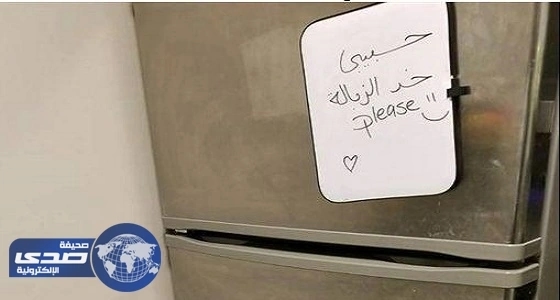 حبيبي
خد الزبالة
please
صحيفة
صدى
الإلكترونية